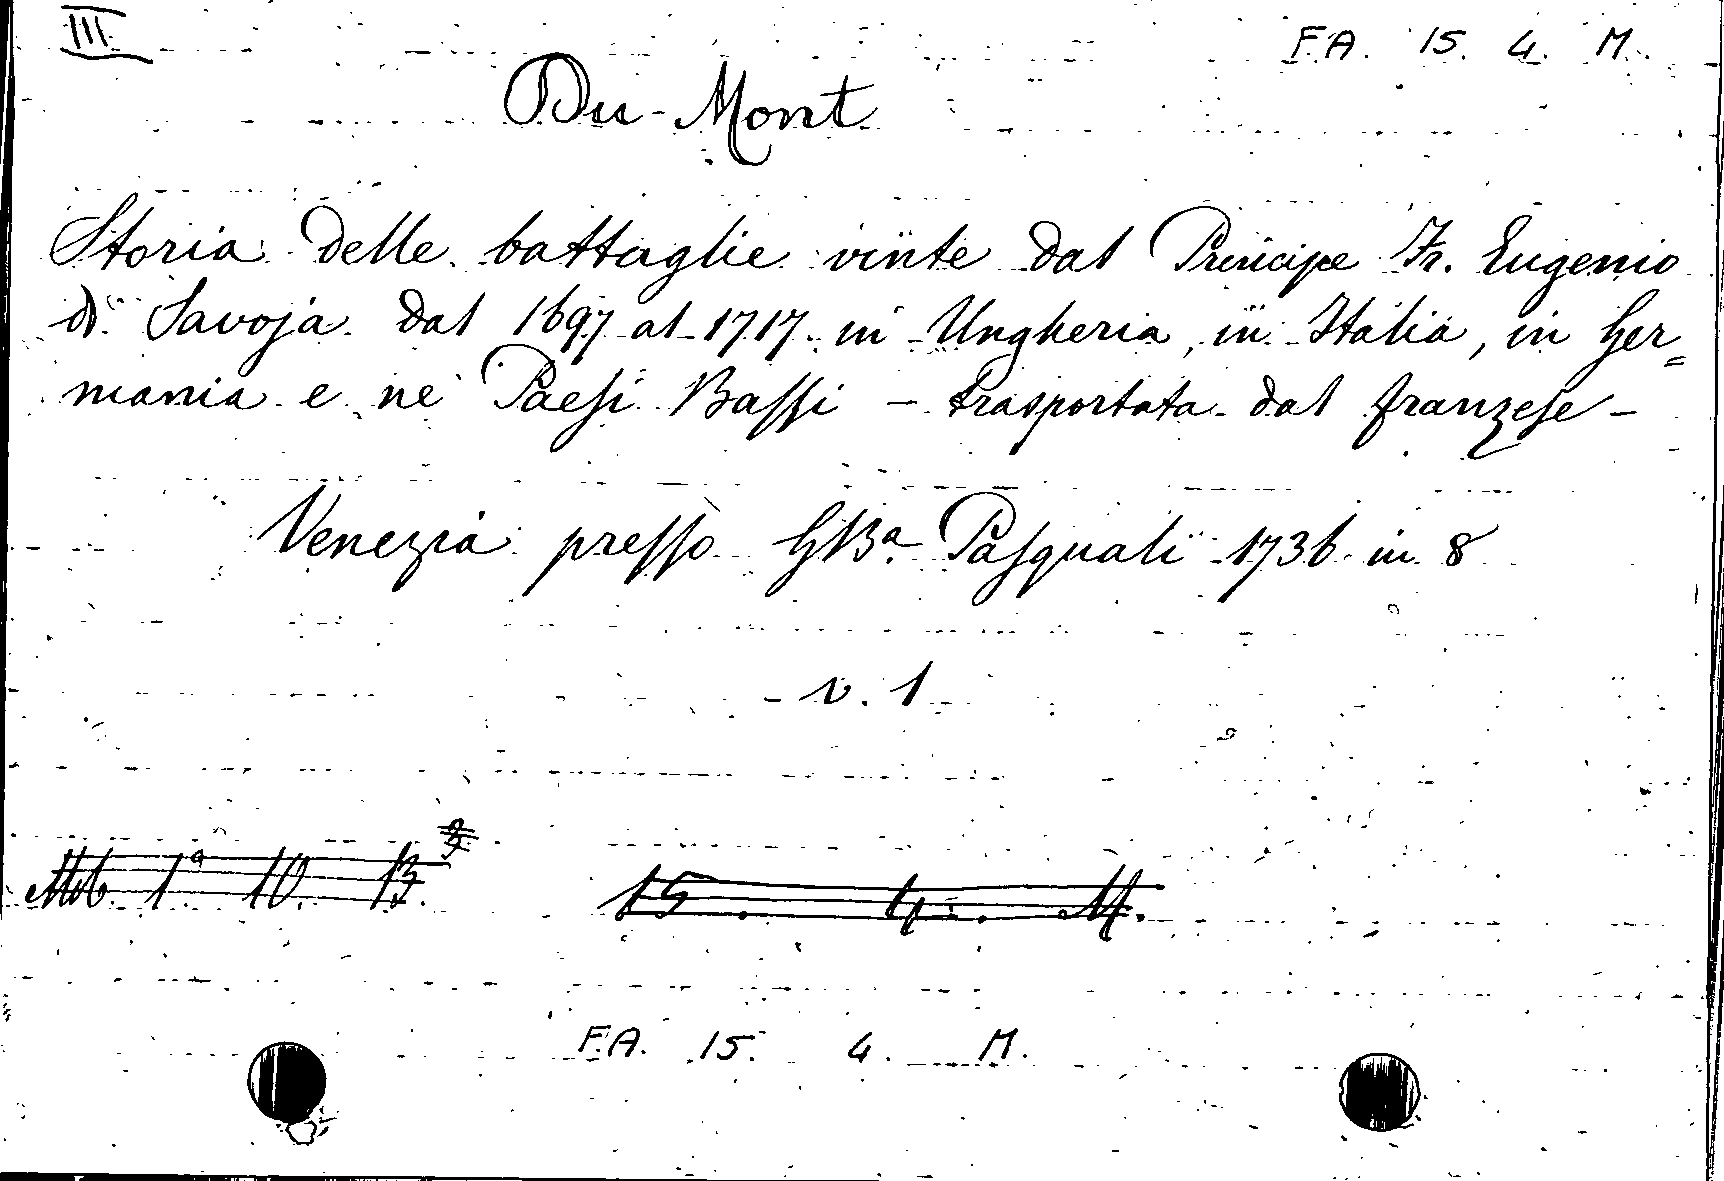 III
F.A. 15. 4. M.
Du-Mont
Storia delle battaglie vinte dal Principe Fr. Eugenio
di Savoja dal 1697 al 1717 in Ungheria, in Italia, in Ger=
mania e ne' Paesi Bassi - trasportata dal franzese -
Venezia presso GBa. Pasquali 1736 in 8
- v. 1
1° 10. B.
15. 4. M.
F.A. 15. 4. M.